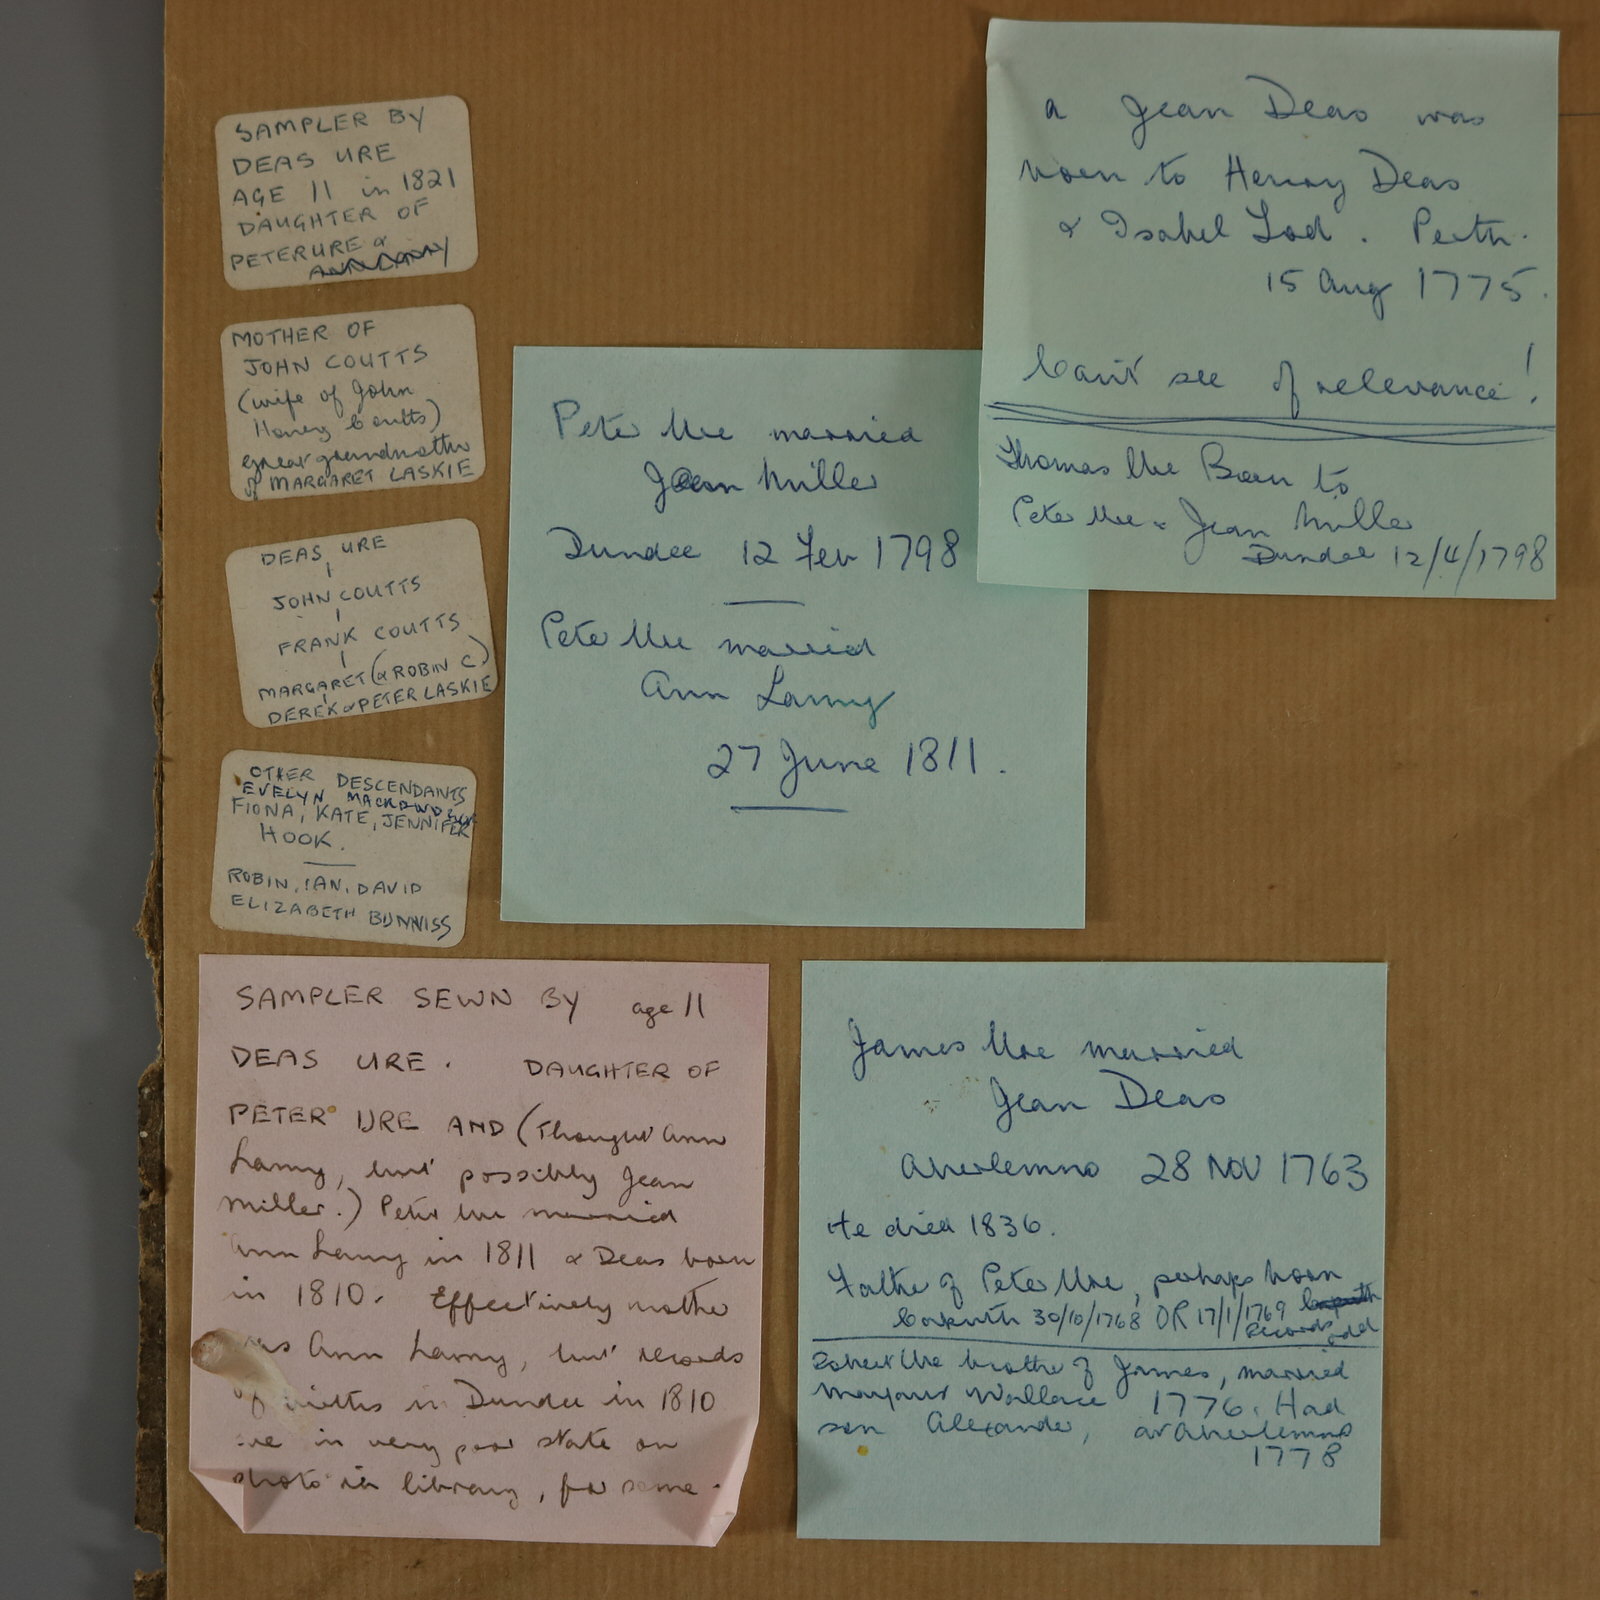 SAMPLER BY
DEAS URE
AGE 11 in 1821
DAUGHTER OF
PETER URE &
MOTHER OF
JOHN COUTTS
(wife of John
Henry Coutts)
great grandmother
of MARGARET LASKIE
DEAS URE
JOHN COUTTS
FRANK COUTTS
MARGARET (& ROBIN C)
DEREK & PETER LASKIE
OTHER DESCENDANTS
EVELYN
FIONA, KATE, JENNIFER
HOOK.
ROBIN, IAN, DAVID
ELIZABETH BUNNISS
Peter Ure married
Jean Miller
Dundee 12 Feb 1798
Peter Ure married
Ann Lamy
27 June 1811.
a Jean Deas was
born to Henry Deas
& Isobel Lod. Perth.
15 Aug 1775.
Can't see of relevance!
Thomas Ure Born to
Peter Ure & Jean Miller
Dundee 12/4/1798
SAMPLER SEWN BY age 11
DEAS URE. DAUGHTER OF
PETER URE AND (Thought Ann
Lamy, but possibly Jean
Miller.) Peter Ure married
Ann Lamy in 1811 & Deas born
in 1810. Effectively mother
was Ann Lamy, but records
of births in Dundee in 1810
are in very poor state on
photo in library, for some.
James Ure married
Jean Deas
Aberlemno 28 NOV 1763
He died 1836.
Father of Peter Ure, perhaps born
30/10/1768 OR 17/1/1769
records odd
Robert Ure brother of James, married
Margaret Wallace 1776. Had
son Alexander, at Aberlemno
1778